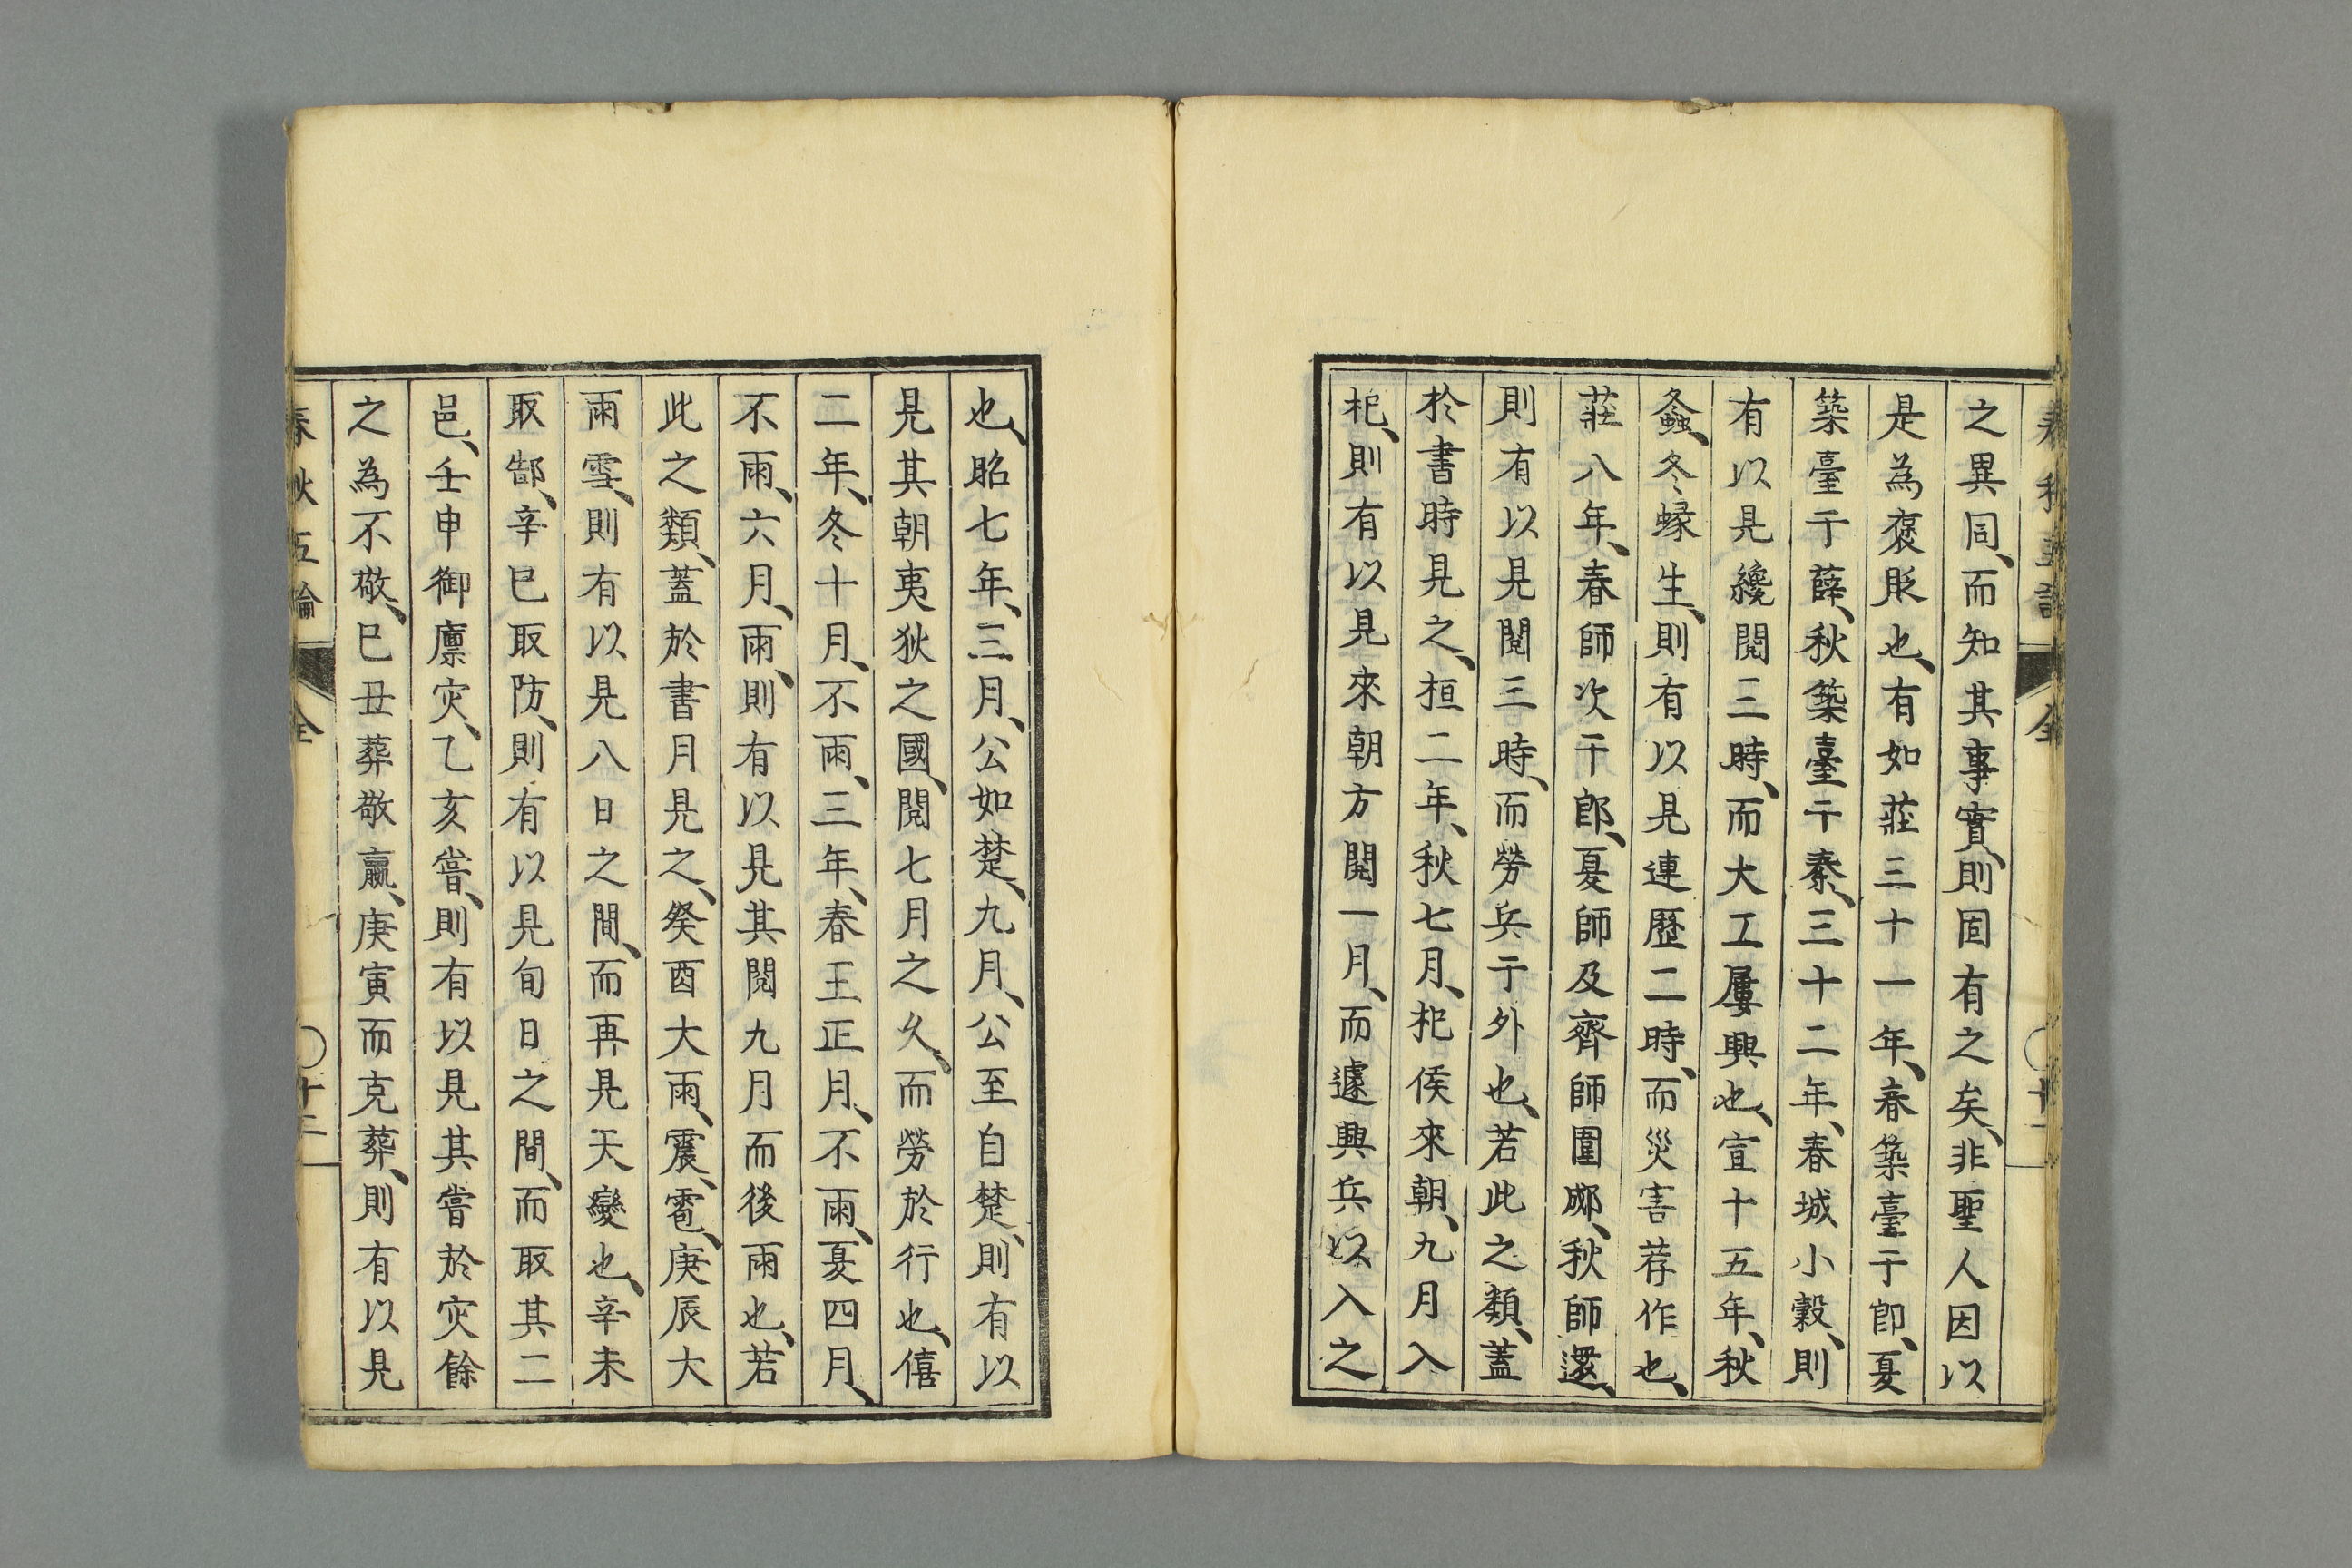 春秋五論
全
十二
之異同、而知其事實、則固有之矣、非聖人因以
是為褒貶也、有如莊三十一年、春築臺于郎、夏
築臺于薛、秋築臺于秦、三十二年、春城小穀、則
有以見纔閱三時、而大工屢興也、宣十五年、秋
螽、冬蝝生、則有以見連歷二時、而災害荐作也、
莊八年、春師次于郎、夏師及齊師圍郕、秋師還、
則有以見閱三時、而勞兵于外也、若此之類、蓋
於書時見之、桓二年、秋七月、杞侯來朝、九月入
杞、則有以見來朝方閱一月、而遽興兵以入之
也、昭七年、三月、公如楚、九月、公至自楚、則有以
見其朝夷狄之國、閱七月之久、而勞於行也、僖
二年、冬十月、不雨、三年、春王正月、不雨、夏四月、
不雨、六月、雨、則有以見其閱九月而後雨也、若
此之類、蓋於書月見之、癸酉大雨、震、雹、庚辰大
雨雪、則有以見八日之間、而再見天變也、辛未
取郜、辛巳取防、則有以見旬日之間、而取其二
邑、壬申御廩灾、乙亥嘗、則有以見其嘗於灾餘
之為不敬、巳丑葬敬嬴、庚寅而克葬、則有以見
春秋五論
全
十三